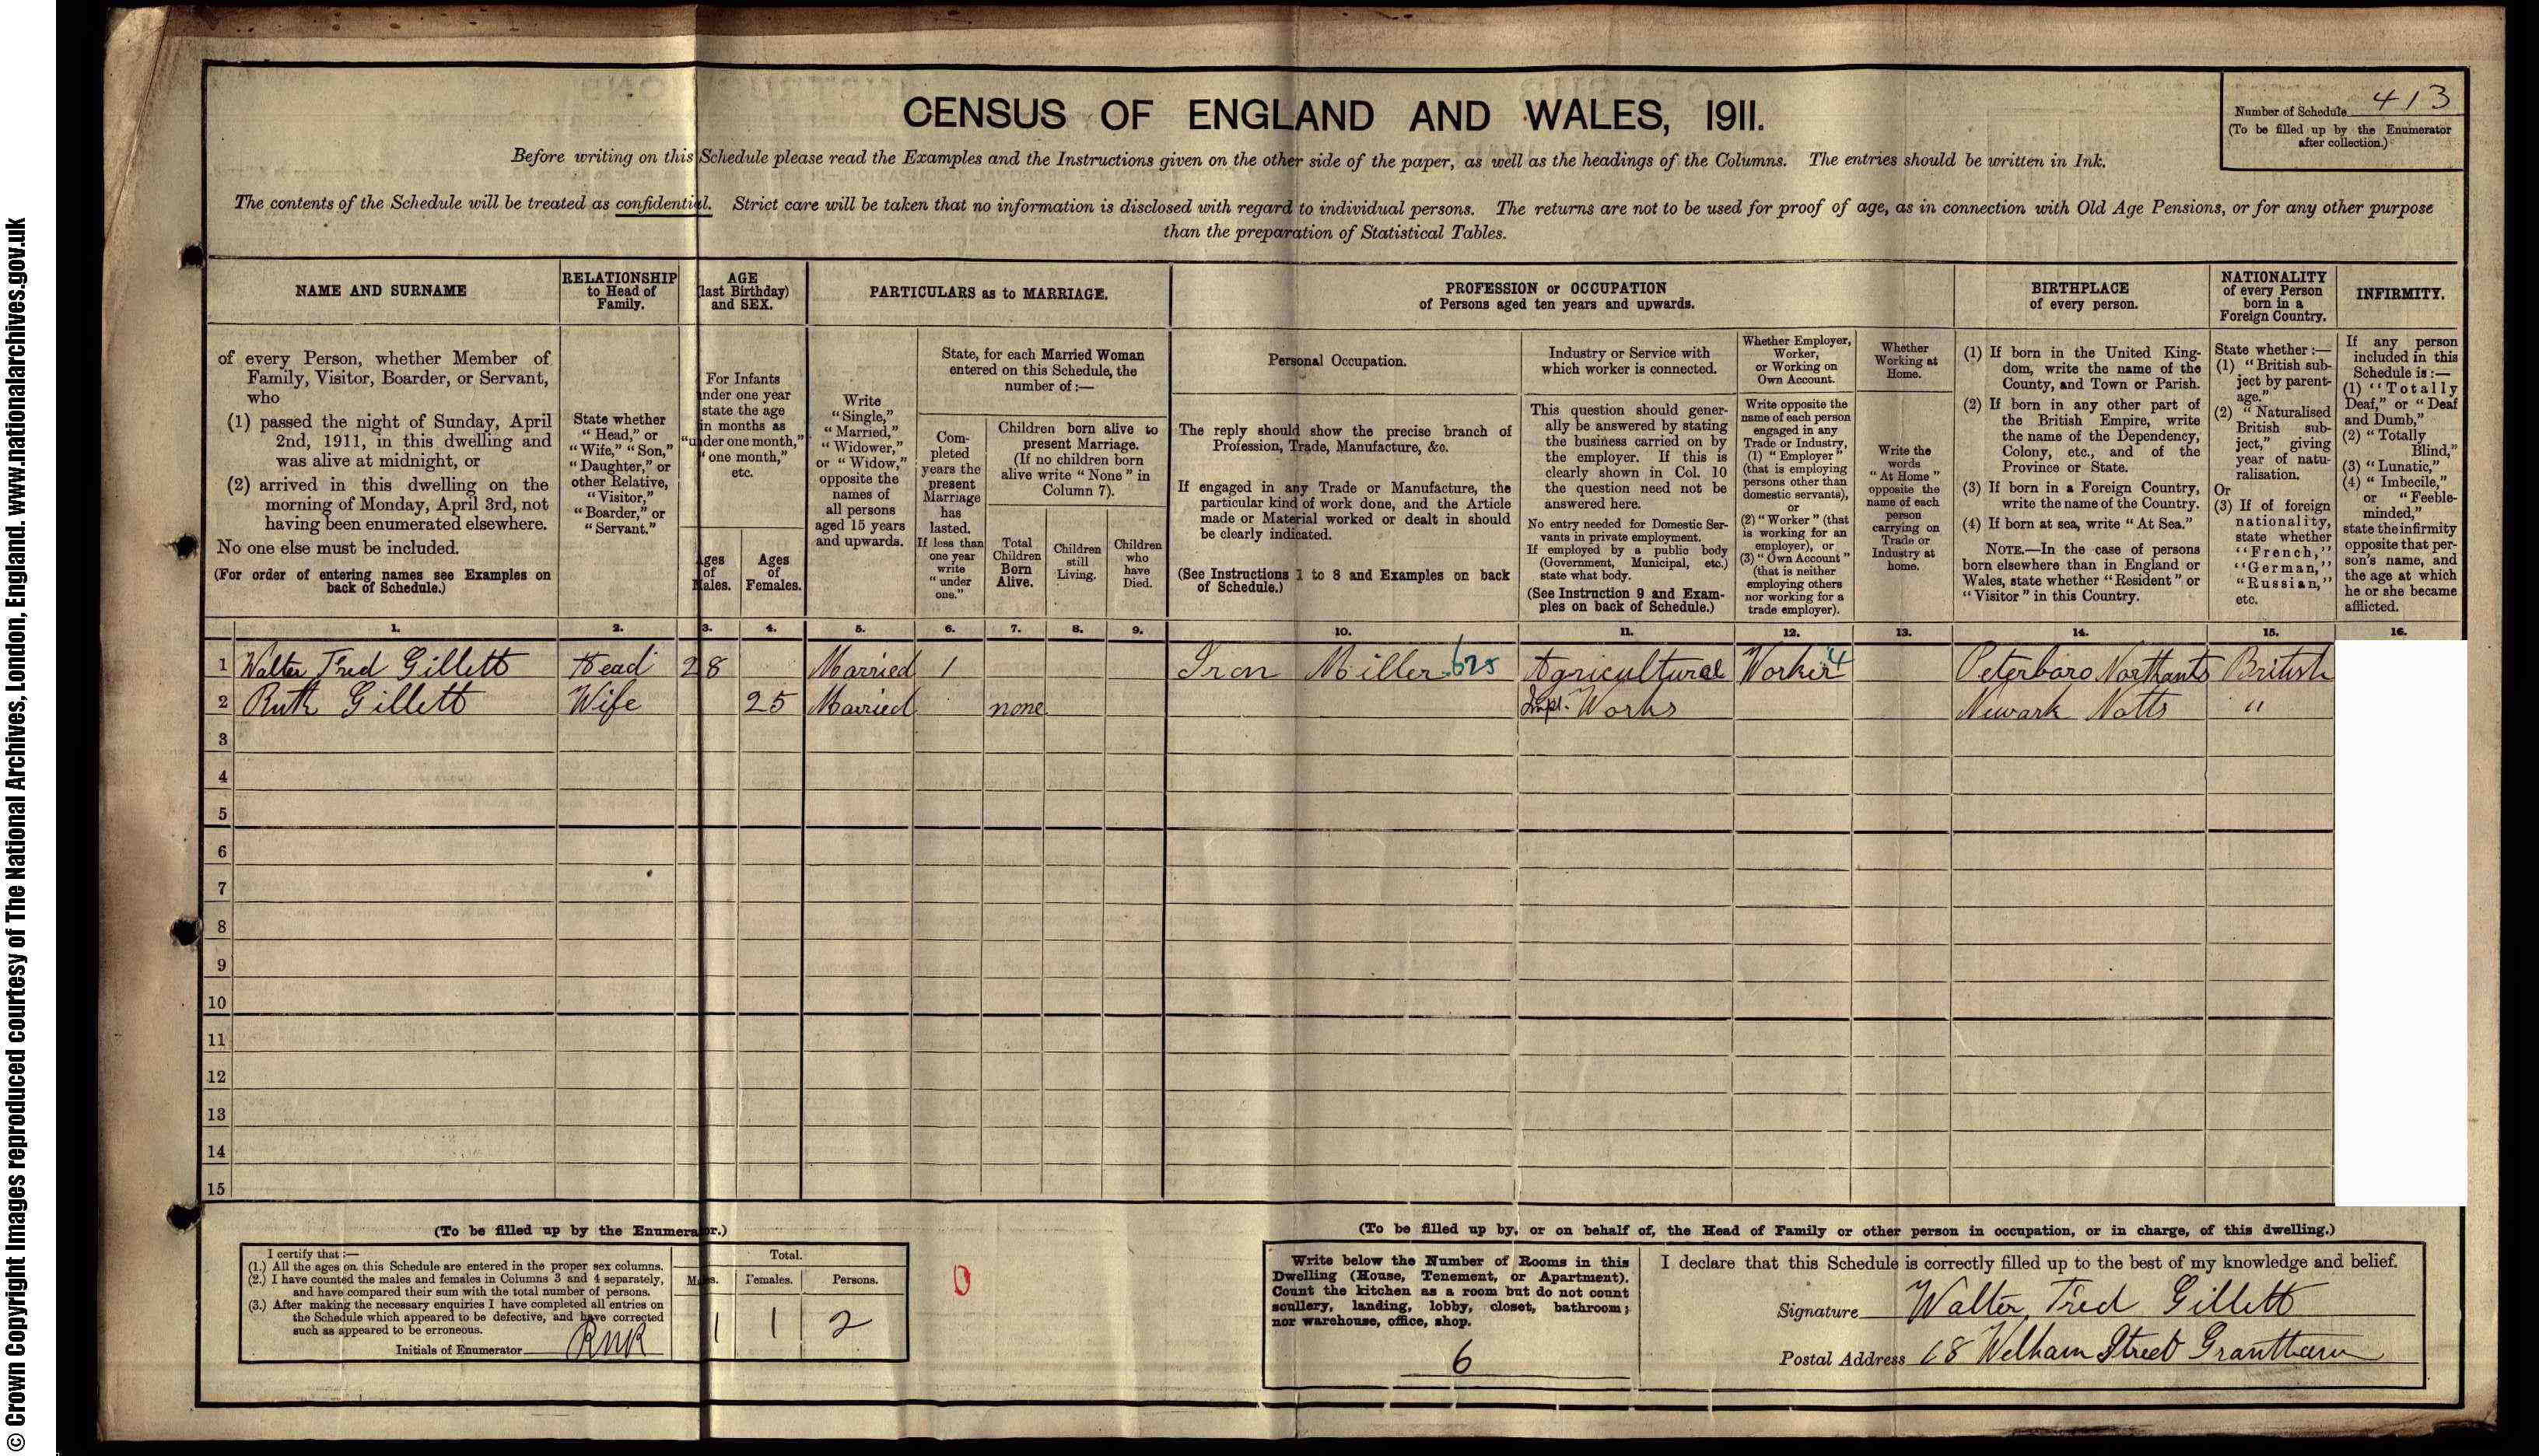 © Crown Copyright Images reproduced courtesy of The National Archives, London, England. www.nationalarchives.gov.uk
CENSUS OF ENGLAND AND WALES, 1911.
Number of Schedule 413
(To be filled up by the Enumerator
after collection.)
Before writing on this Schedule please read the Examples and the Instructions given on the other side of the paper, as well as the headings of the Columns. The entries should be written in Ink.
The contents of the Schedule will be treated as confidential. Strict care will be taken that no information is disclosed with regard to individual persons. The returns are not to be used for proof of age, as in connection with Old Age Pensions, or for any other purpose
than the preparation of Statistical Tables.
NAME AND SURNAME
of every Person, whether Member of
Family, Visitor, Boarder, or Servant,
who
(1) passed the night of Sunday, April
2nd, 1911, in this dwelling and
was alive at midnight, or
(2) arrived in this dwelling on the
morning of Monday, April 3rd, not
having been enumerated elsewhere.
No one else must be included.
(For order of entering names see Examples on
back of Schedule.)
RELATIONSHIP
to Head of
Family.
State whether
"Head," or
"Wife," "Son,"
"Daughter," or
other Relative,
"Visitor,"
"Boarder," or
"Servant."
AGE
(last Birthday)
and SEX.
For Infants
under one year
state the age
in months as
"under one month,"
"one month,"
etc.
Ages
of
Males.
Ages
of
Females.
PARTICULARS as to MARRIAGE.
Write
"Single,"
"Married,"
"Widower,"
or "Widow,"
opposite the
names of
all persons
aged 15 years
and upwards.
State, for each Married Woman
entered on this Schedule, the
number of:—
Com-
pleted
years the
present
Marriage
has
lasted.
If less than
one year
write
"under
one."
Children born alive to
present Marriage.
(If no children born
alive write "None" in
Column 7).
Total
Children
Born
Alive.
Children
still
Living.
Children
who
have
Died.
PROFESSION or OCCUPATION
of Persons aged ten years and upwards.
Personal Occupation.
The reply should show the precise branch of
Profession, Trade, Manufacture, &c.
If engaged in any Trade or Manufacture, the
particular kind of work done, and the Article
made or Material worked or dealt in should
be clearly indicated.
(See Instructions 1 to 8 and Examples on back
of Schedule.)
Industry or Service with
which worker is connected.
This question should gener-
ally be answered by stating
the business carried on by
the employer. If this is
clearly shown in Col. 10
the question need not be
answered here.
No entry needed for Domestic Ser-
vants in private employment.
If employed by a public body
(Government, Municipal, etc.)
state what body.
(See Instruction 9 and Exam-
ples on back of Schedule.)
Whether Employer,
Worker,
or Working on
Own Account.
Write opposite the
name of each person
engaged in any
Trade or Industry,
(1) "Employer"
(that is employing
persons other than
domestic servants),
or
(2) "Worker" (that
is working for an
employer), or
(3) "Own Account"
(that is neither
employing others
nor working for a
trade employer).
Whether
Working at
Home.
Write the
words
"At Home"
opposite the
name of each
person
carrying on
Trade or
Industry at
home.
BIRTHPLACE
of every person.
(1) If born in the United King-
dom, write the name of the
County, and Town or Parish.
(2) If born in any other part of
the British Empire, write
the name of the Dependency,
Colony, etc., and of the
Province or State.
(3) If born in a Foreign Country,
write the name of the Country.
(4) If born at sea, write "At Sea."
NOTE.—In the case of persons
born elsewhere than in England or
Wales, state whether "Resident" or
"Visitor" in this Country.
NATIONALITY
of every Person
born in a
Foreign Country.
State whether:—
(1) "British sub-
ject by parent-
age."
(2) "Naturalised
British sub-
ject," giving
year of natu-
ralisation.
Or
(3) If of foreign
nationality,
state whether
"French,"
"German,"
"Russian,"
etc.
INFIRMITY.
If any person
included in this
Schedule is:—
(1) "Totally
Deaf," or "Deaf
and Dumb,"
(2) "Totally
Blind,"
(3) "Lunatic,"
(4) "Imbecile,"
or "Feeble-
minded,"
state the infirmity
opposite that per-
son's name, and
the age at which
he or she became
afflicted.
1. 2. 3. 4. 5. 6. 7. 8. 9. 10. 11. 12. 13. 14. 15. 16.
1 Walter Fred Gillett Head 28 Married 1 Iron Miller 625 Agricultural Worker 4 Peterboro Northants British
2 Ruth Gillett Wife 25 Married none Impl. Works Newark Notts "
3
4
5
6
7
8
9
10
11
12
13
14
15
(To be filled up by the Enumerator.)
I certify that:—
(1.) All the ages on this Schedule are entered in the proper sex columns.
(2.) I have counted the males and females in Columns 3 and 4 separately,
and have compared their sum with the total number of persons.
(3.) After making the necessary enquiries I have completed all entries on
the Schedule which appeared to be defective, and have corrected
such as appeared to be erroneous.
Initials of Enumerator
Total.
Males. Females. Persons.
1 1 2
0
(To be filled up by, or on behalf of, the Head of Family or other person in occupation, or in charge, of this dwelling.)
Write below the Number of Rooms in this
Dwelling (House, Tenement, or Apartment).
Count the kitchen as a room but do not count
scullery, landing, lobby, closet, bathroom;
nor warehouse, office, shop.
6
I declare that this Schedule is correctly filled up to the best of my knowledge and belief.
Signature Walter Fred Gillett
Postal Address 68 Welham Street Grantham